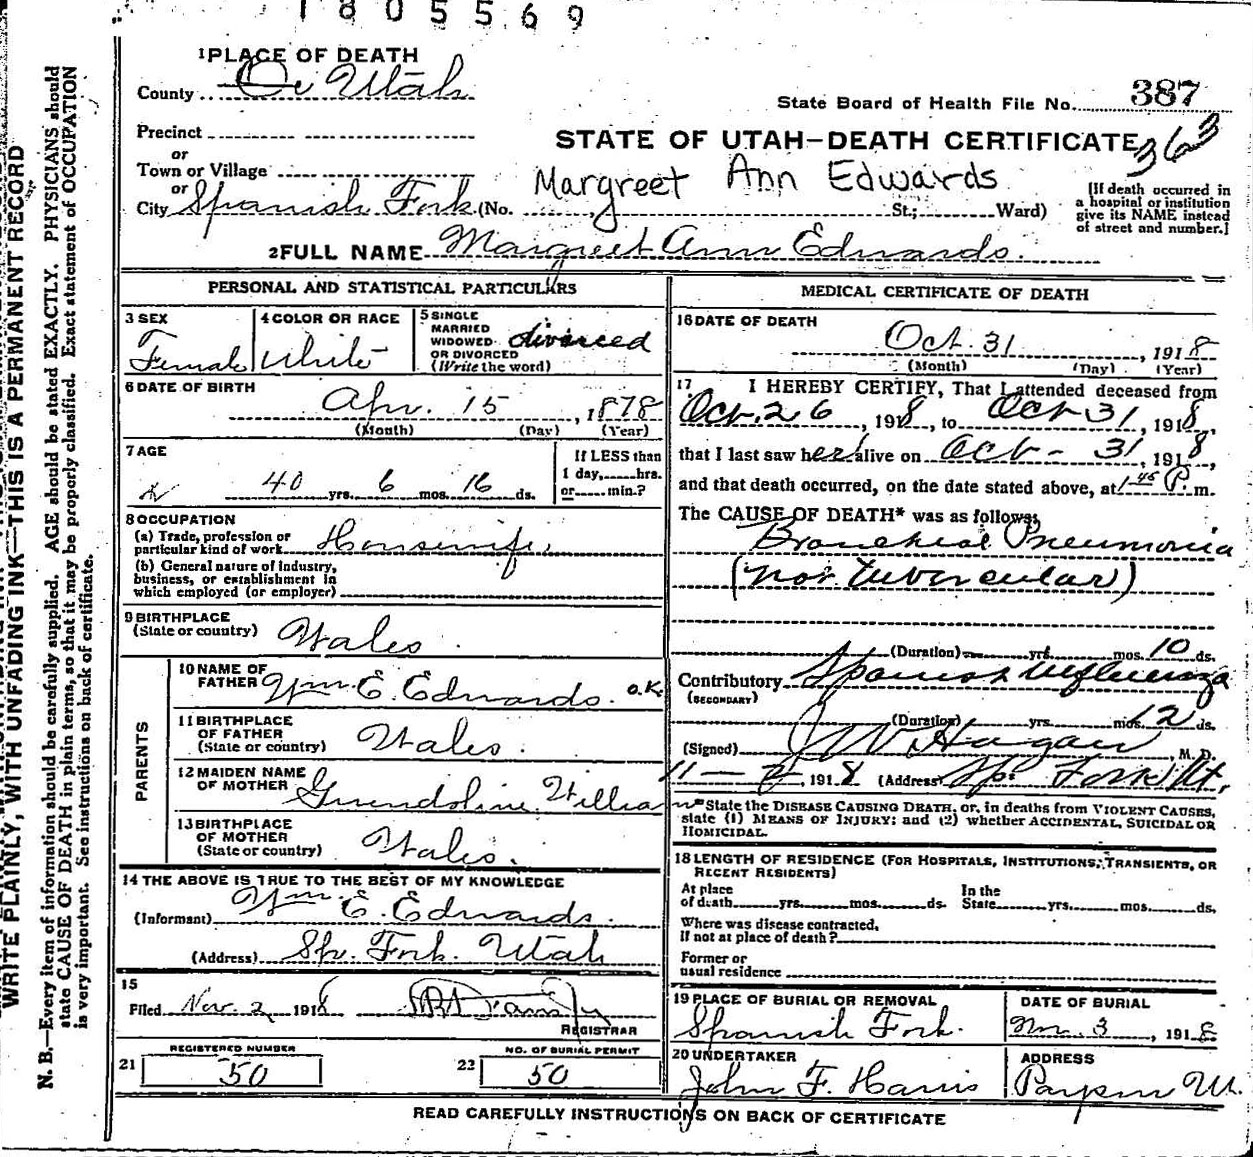 1805569
1 PLACE OF DEATH
County Utah
State Board of Health File No. 387
Precinct
STATE OF UTAH—DEATH CERTIFICATE 363
or
Town or Village
or
Margreet Ann Edwards
City Spanish Fork (No. St.; Ward)
[If death occurred in a hospital or institution give its NAME instead of street and number.]
2 FULL NAME Margreet Ann Edwards.
PERSONAL AND STATISTICAL PARTICULARS
3 SEX Female
4 COLOR OR RACE White
5 SINGLE MARRIED WIDOWED OR DIVORCED (Write the word) divorced
6 DATE OF BIRTH
Apr. 15, 1878
(Month) (Day) (Year)
7 AGE
40 yrs. 6 mos. 16 ds.
If LESS than 1 day, hrs. or min.?
8 OCCUPATION
(a) Trade, profession or particular kind of work Housewife
(b) General nature of industry, business, or establishment in which employed (or employer)
9 BIRTHPLACE
(State or country) Wales.
PARENTS
10 NAME OF FATHER Wm E. Edwards. O.K.
11 BIRTHPLACE OF FATHER (State or country) Wales.
12 MAIDEN NAME OF MOTHER Gwendoline William
13 BIRTHPLACE OF MOTHER (State or country) Wales.
14 THE ABOVE IS TRUE TO THE BEST OF MY KNOWLEDGE
(Informant) Wm. E. Edwards.
(Address) Sp. Fork Utah
15
Filed Nov. 2, 1918
REGISTRAR
21 REGISTERED NUMBER 50
22 NO. OF BURIAL PERMIT 50
MEDICAL CERTIFICATE OF DEATH
16 DATE OF DEATH
Oct. 31, 1918
(Month) (Day) (Year)
17 I HEREBY CERTIFY, That I attended deceased from
Oct. 26, 1918, to Oct 31, 1918,
that I last saw her alive on Oct - 31, 1918,
and that death occurred, on the date stated above, at 1 45 P. m.
The CAUSE OF DEATH* was as follows:
Bronchial Pneumonia
(not tubercular)
(Duration) yrs. mos. 10 ds.
Contributory Spanish Influenza
(SECONDARY)
(Duration) yrs. mos. 12 ds.
(Signed) J W Hagan, M.D.
11 — 2, 1918 (Address) Sp. Fork Ut.
*State the DISEASE CAUSING DEATH, or, in deaths from VIOLENT CAUSES,
state (1) MEANS OF INJURY; and (2) whether ACCIDENTAL, SUICIDAL OR
HOMICIDAL.
18 LENGTH OF RESIDENCE (FOR HOSPITALS, INSTITUTIONS, TRANSIENTS, OR
RECENT RESIDENTS)
At place of death yrs. mos. ds. In the State yrs. mos. ds.
Where was disease contracted,
if not at place of death?
Former or
usual residence
19 PLACE OF BURIAL OR REMOVAL
Spanish Fork.
DATE OF BURIAL
Nov. 3, 1918
20 UNDERTAKER
John F. Harris
ADDRESS
Payson Ut.
READ CAREFULLY INSTRUCTIONS ON BACK OF CERTIFICATE
WRITE PLAINLY, WITH UNFADING INK—THIS IS A PERMANENT RECORD
N. B.—Every item of information should be carefully supplied. AGE should be stated EXACTLY. PHYSICIANS should
state CAUSE OF DEATH in plain terms, so that it may be properly classified. Exact statement of OCCUPATION
is very important. See instructions on back of certificate.